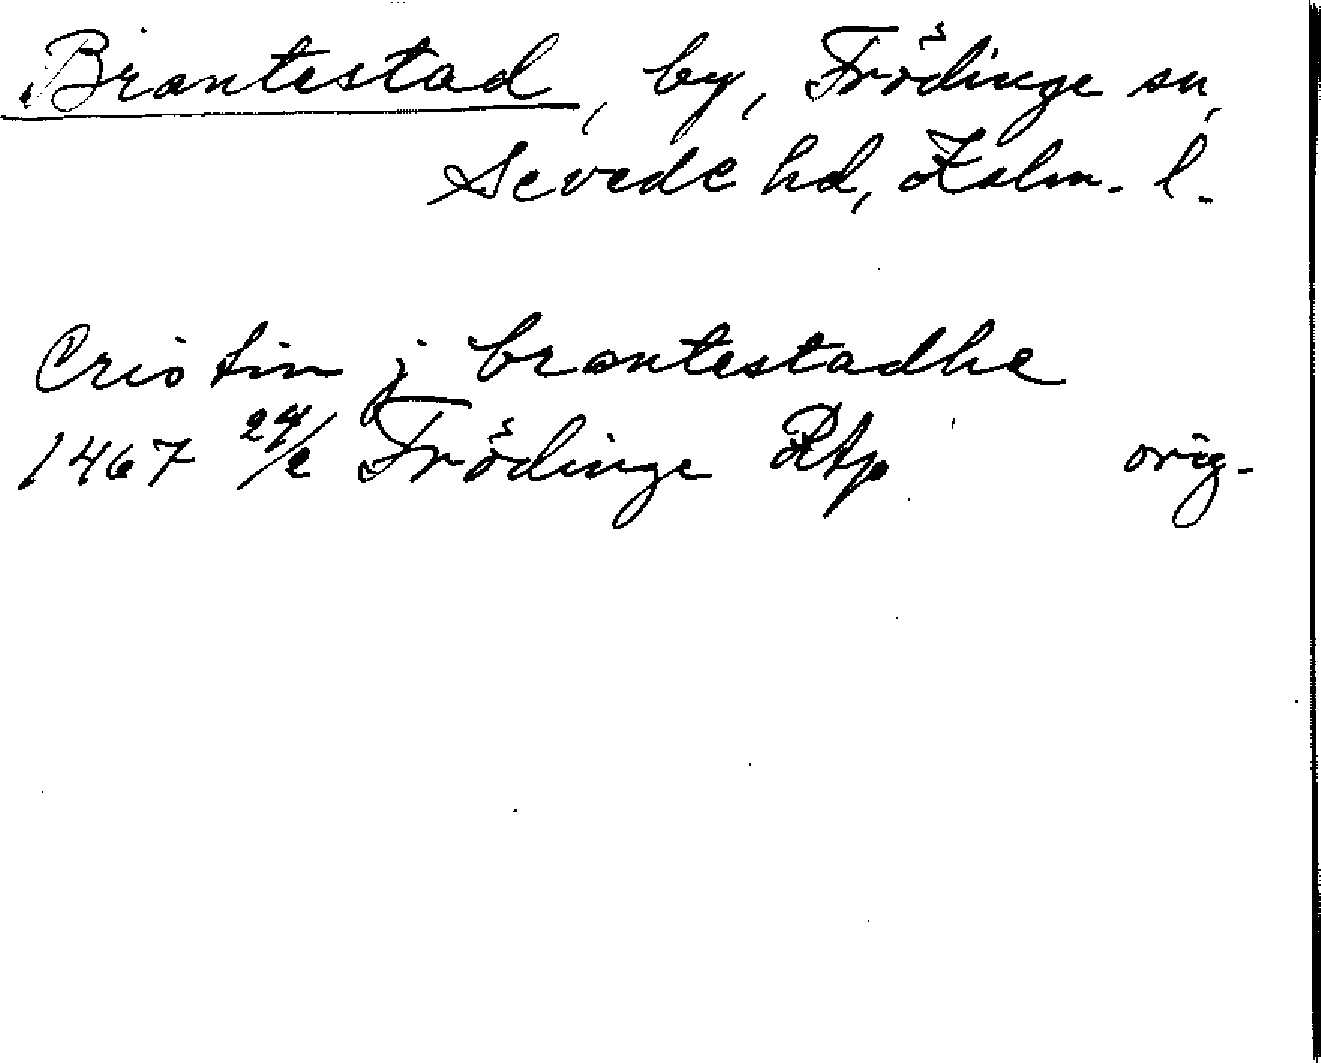 Brantestad, by, Frödinge sn,
Sevede hd, Kalm. l.
Cristin j brantestadhe
1467 24/2 Frödinge Rtp orig.